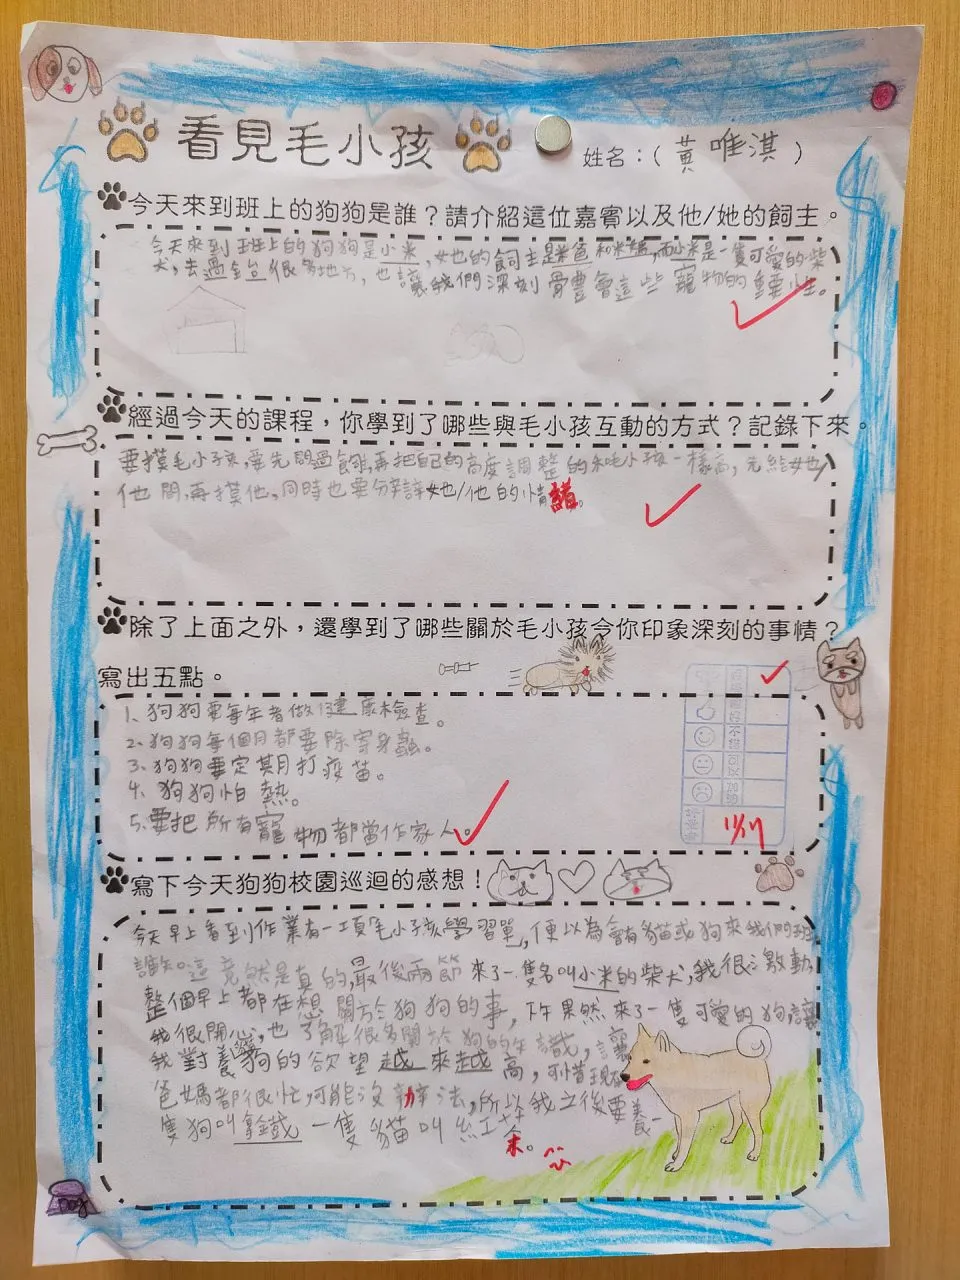 看見毛小孩
姓名：(黃唯淇)
今天來到班上的狗狗是誰？請介紹這位嘉賓以及他/她的飼主。
今天來到班上的狗狗是小米，她的飼主是米爸和米媽，而小米是一隻可愛的柴
犬，去過全台很多地方，也讓我們深刻體會這些寵物的重要性。
經過今天的課程，你學到了哪些與毛小孩互動的方式？記錄下來。
要摸毛小孩，要先問過飼主，再把自己的高度調整的和毛小孩一樣高，先給她/
他聞，再摸他，同時也要分辨她/他的情緒。
除了上面之外，還學到了哪些關於毛小孩令你印象深刻的事情？
寫出五點。
1、狗狗要每年者做健康檢查。
2、狗狗每個月都要除寄身蟲。
3、狗狗要定其月打疫苗。
4、狗狗怕熱。
5、要把所有寵物都當作家人。
11/27
寫下今天狗狗校園巡迴的感想！
今天早上看到作業有一項「毛小孩學習單」，便以為會有貓或狗來我們班
誰知這竟然是真的，最後兩節來了一隻名叫小米的柴犬，我很激動
整個早上都在想關於狗狗的事，下午果然來了一隻可愛的狗讓
我很開心，也了解很多關於狗的知識，讓
我對養狗的欲望越來越高，可惜現在
爸媽都很忙，可能沒辦法，所以我之後要養一
隻狗叫拿鐵一隻貓叫紅茶。
Dog